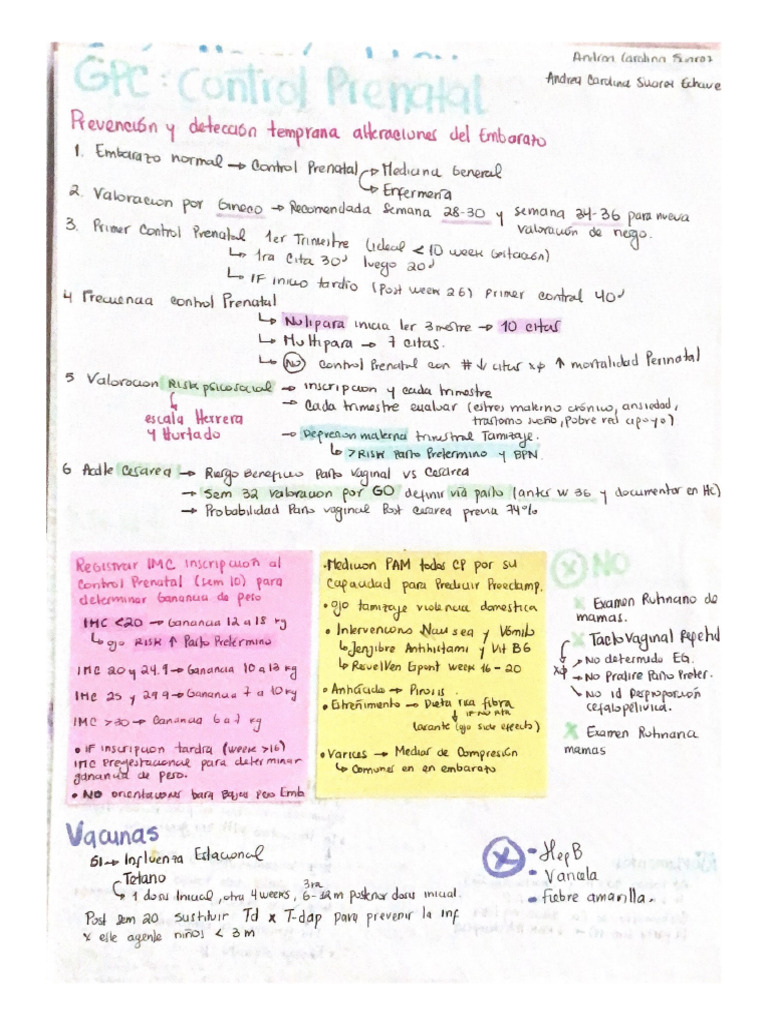 Andrea Carolina Suarez
Andrea Carolina Suarez Echave
GPC: Control Prenatal
Prevención y detección temprana alteraciones del Embarazo
1. Embarazo normal → Control Prenatal → Medicina General
→ Enfermería
2. Valoracion por Gineco → Recomendada Semana 28-30 y semana 34-36 para nueva
valoración de riesgo.
3. Primer Control Prenatal 1er Trimestre (ideal < 10 week Gestación)
↳ 1ra cita 30' luego 20'
↳ IF inicio tardio (Post week 26) Primer control 40'
4 Frecuencia control Prenatal
↳ Nulipara inicia 1er 3mestre → 10 citas
↳ Multipara → 7 citas.
↳ NO control Prenatal con # ↓ citas xq ↑ mortalidad Perinatal
5 Valoracion Risk psicosocial → inscripcion y cada trimestre
→ Cada trimestre evaluar (estres materno crónico, ansiedad,
trastorno sueño, Pobre red apoyo)
escala Herrera
y Hurtado
→ Depresion materna trimestral Tamizaje.
↳ >RISK Parto Pretermino y BPN.
6 Cesarea → Riesgo Beneficio Parto Vaginal vs Cesárea
→ Sem 32 valoracion por GO definir via parto (antes w 36 y documentar en HC)
→ Probabilidad Parto vaginal Post cesarea previa 74%
Registrar IMC inscripcion al
control Prenatal (sem 10) para
determinar Ganancia de peso
IMC <20 → Ganancia 12 a 18 kg
↳ ojo RISK ↑ Parto Pretermino
IMC 20 y 24.9 → Ganancia 10 a 13 kg
IMC 25 y 29.9 → Ganancia 7 a 10 kg
IMC >30 → Ganancia 6 a 7 kg
• IF inscripcion tardia (week >16)
IMC Pregestacional para determinar
ganancia de peso.
• NO orientaciones para Bajar peso Emb
• Medicion PAM todos CP por su
capacidad para Predecir Preeclamp.
• ojo tamizaje violencia domestica
• Intervenciones Nausea y Vómito
↳ Jenjibre Antihistami y Vit B6
↳ Resuelven Espont week 16-20
• Anhidado → Pirosis.
• Estreñimento → Dieta rica fibra
↓ IF NO RTA
laxante (ojo side effects)
• Varices → Medias de Compresión
↳ Comunes en en embarazo
X NO
X Examen Rutinario de
mamas.
X Tacto Vaginal Repetid
xq
→ No determina EG.
→ No Predice Parto Preter.
→ No id Desproporcion
cefalopelvica.
X Examen Rutinaria
mamas
Vacunas
SI → Influenza Estacional
Tetano
↳ 1 dosis Inicial, otra 4 weeks, 3ra 6-12m posterior dosis inicial.
Post sem 20 sustituir Td x T-dap para prevenir la inf
x este agente niños < 3 m
X
• HepB
• Varicela
• Fiebre amarilla.